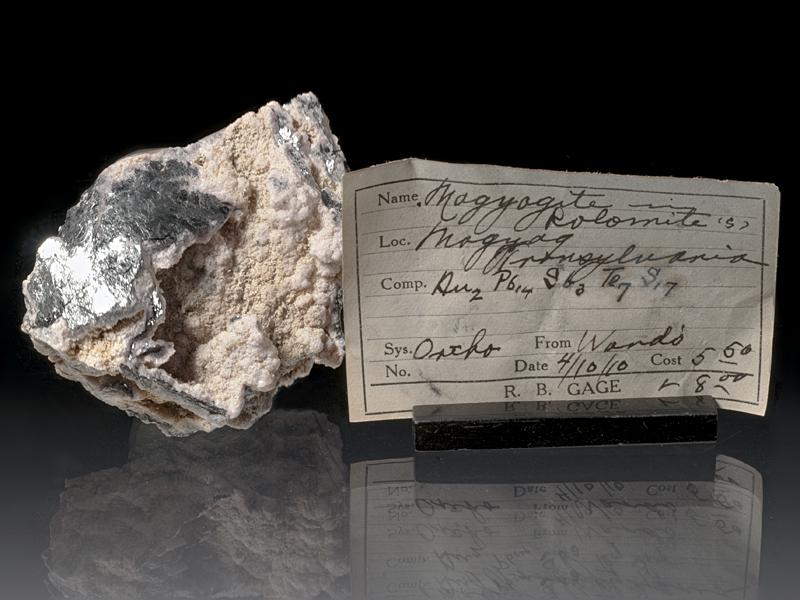 Name. Nagyagite in
Dolomite (S)
Loc. Nagyag
Transylvania
Comp. Au2 Pb14 Sb3 Te7 S17
Sys. Ortho From Wards
No. Date 4/10/10 Cost 5 50
R. B. GAGE 8 00